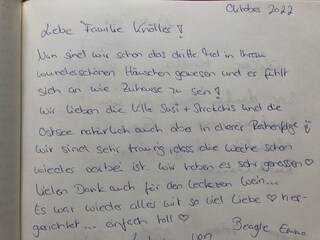 Oktober 2022
Liebe Familie Knöller!
Nun sind wir schon das dritte Mal in Ihrem
wunderschönen Häuschen gewesen und es fühlt
sich an wie Zuhause zu sein!
Wir lieben die Villa Susi + Strolchis und die
Ostsee natürlich auch aber in dieser Reihenfolge!
Wir sind sehr traurig, dass die Woche schon
wieder vorbei ist. Wir haben es sehr genossen ♡
Vielen Dank auch für den leckeren Wein...
Es war wieder alles mit so viel Liebe ♡ her-
gerichtet... einfach toll ♡
Beagle Emma
von